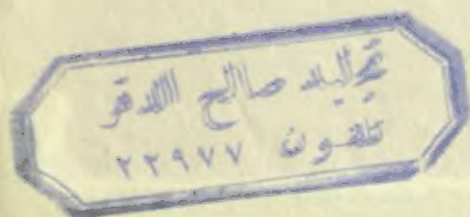 تجليد صالح الدقر
تلفون ٢٢٩٧٧